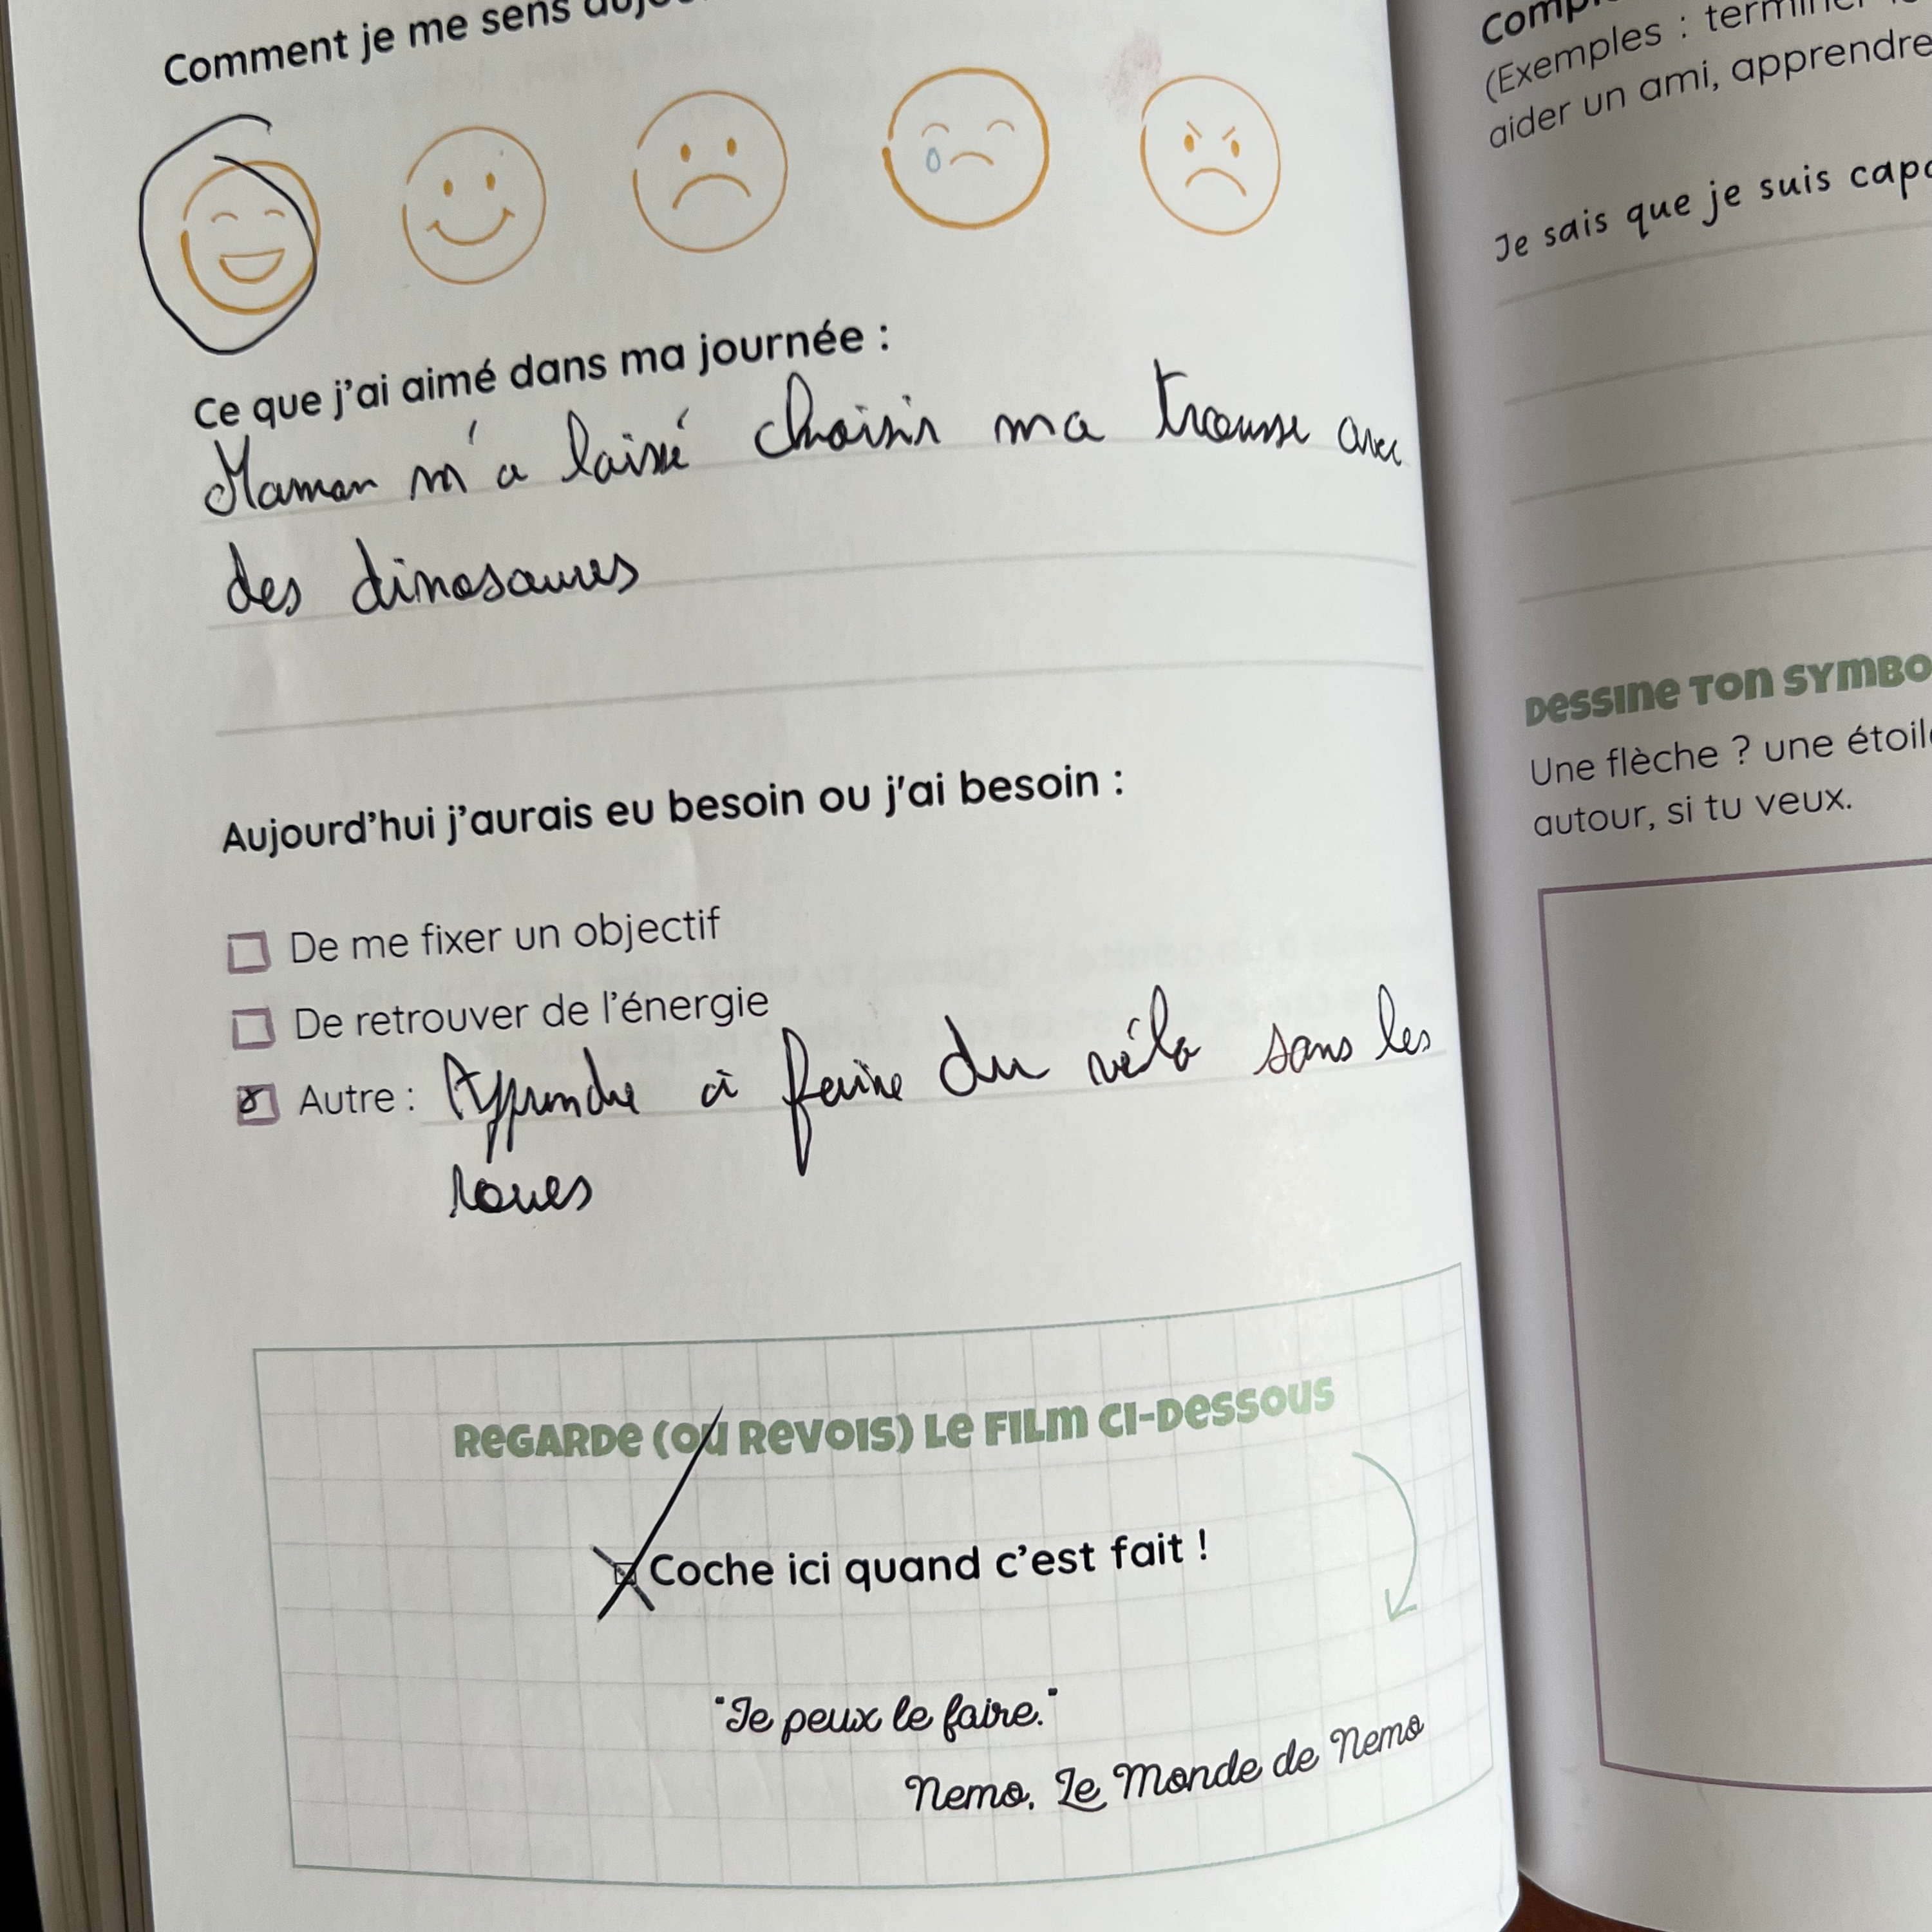 Comment je me sens
Ce que j'ai aimé dans ma journée :
Maman m'a laissé choisir ma trousse avec
des dinosaures
Aujourd'hui j'aurais eu besoin ou j'ai besoin :
De me fixer un objectif
De retrouver de l'énergie
Autre : Apprendre à faire du vélo sans les
roues
REGARDE (OU REVOIS) LE FILM CI-DESSOUS
Coche ici quand c'est fait !
"Je peux le faire."
Nemo. Le Monde de Nemo
(Exemples :
aider un ami, apprendre
Je sais que je suis
DESSINE TON
Une flèche ? une
autour, si tu veux.